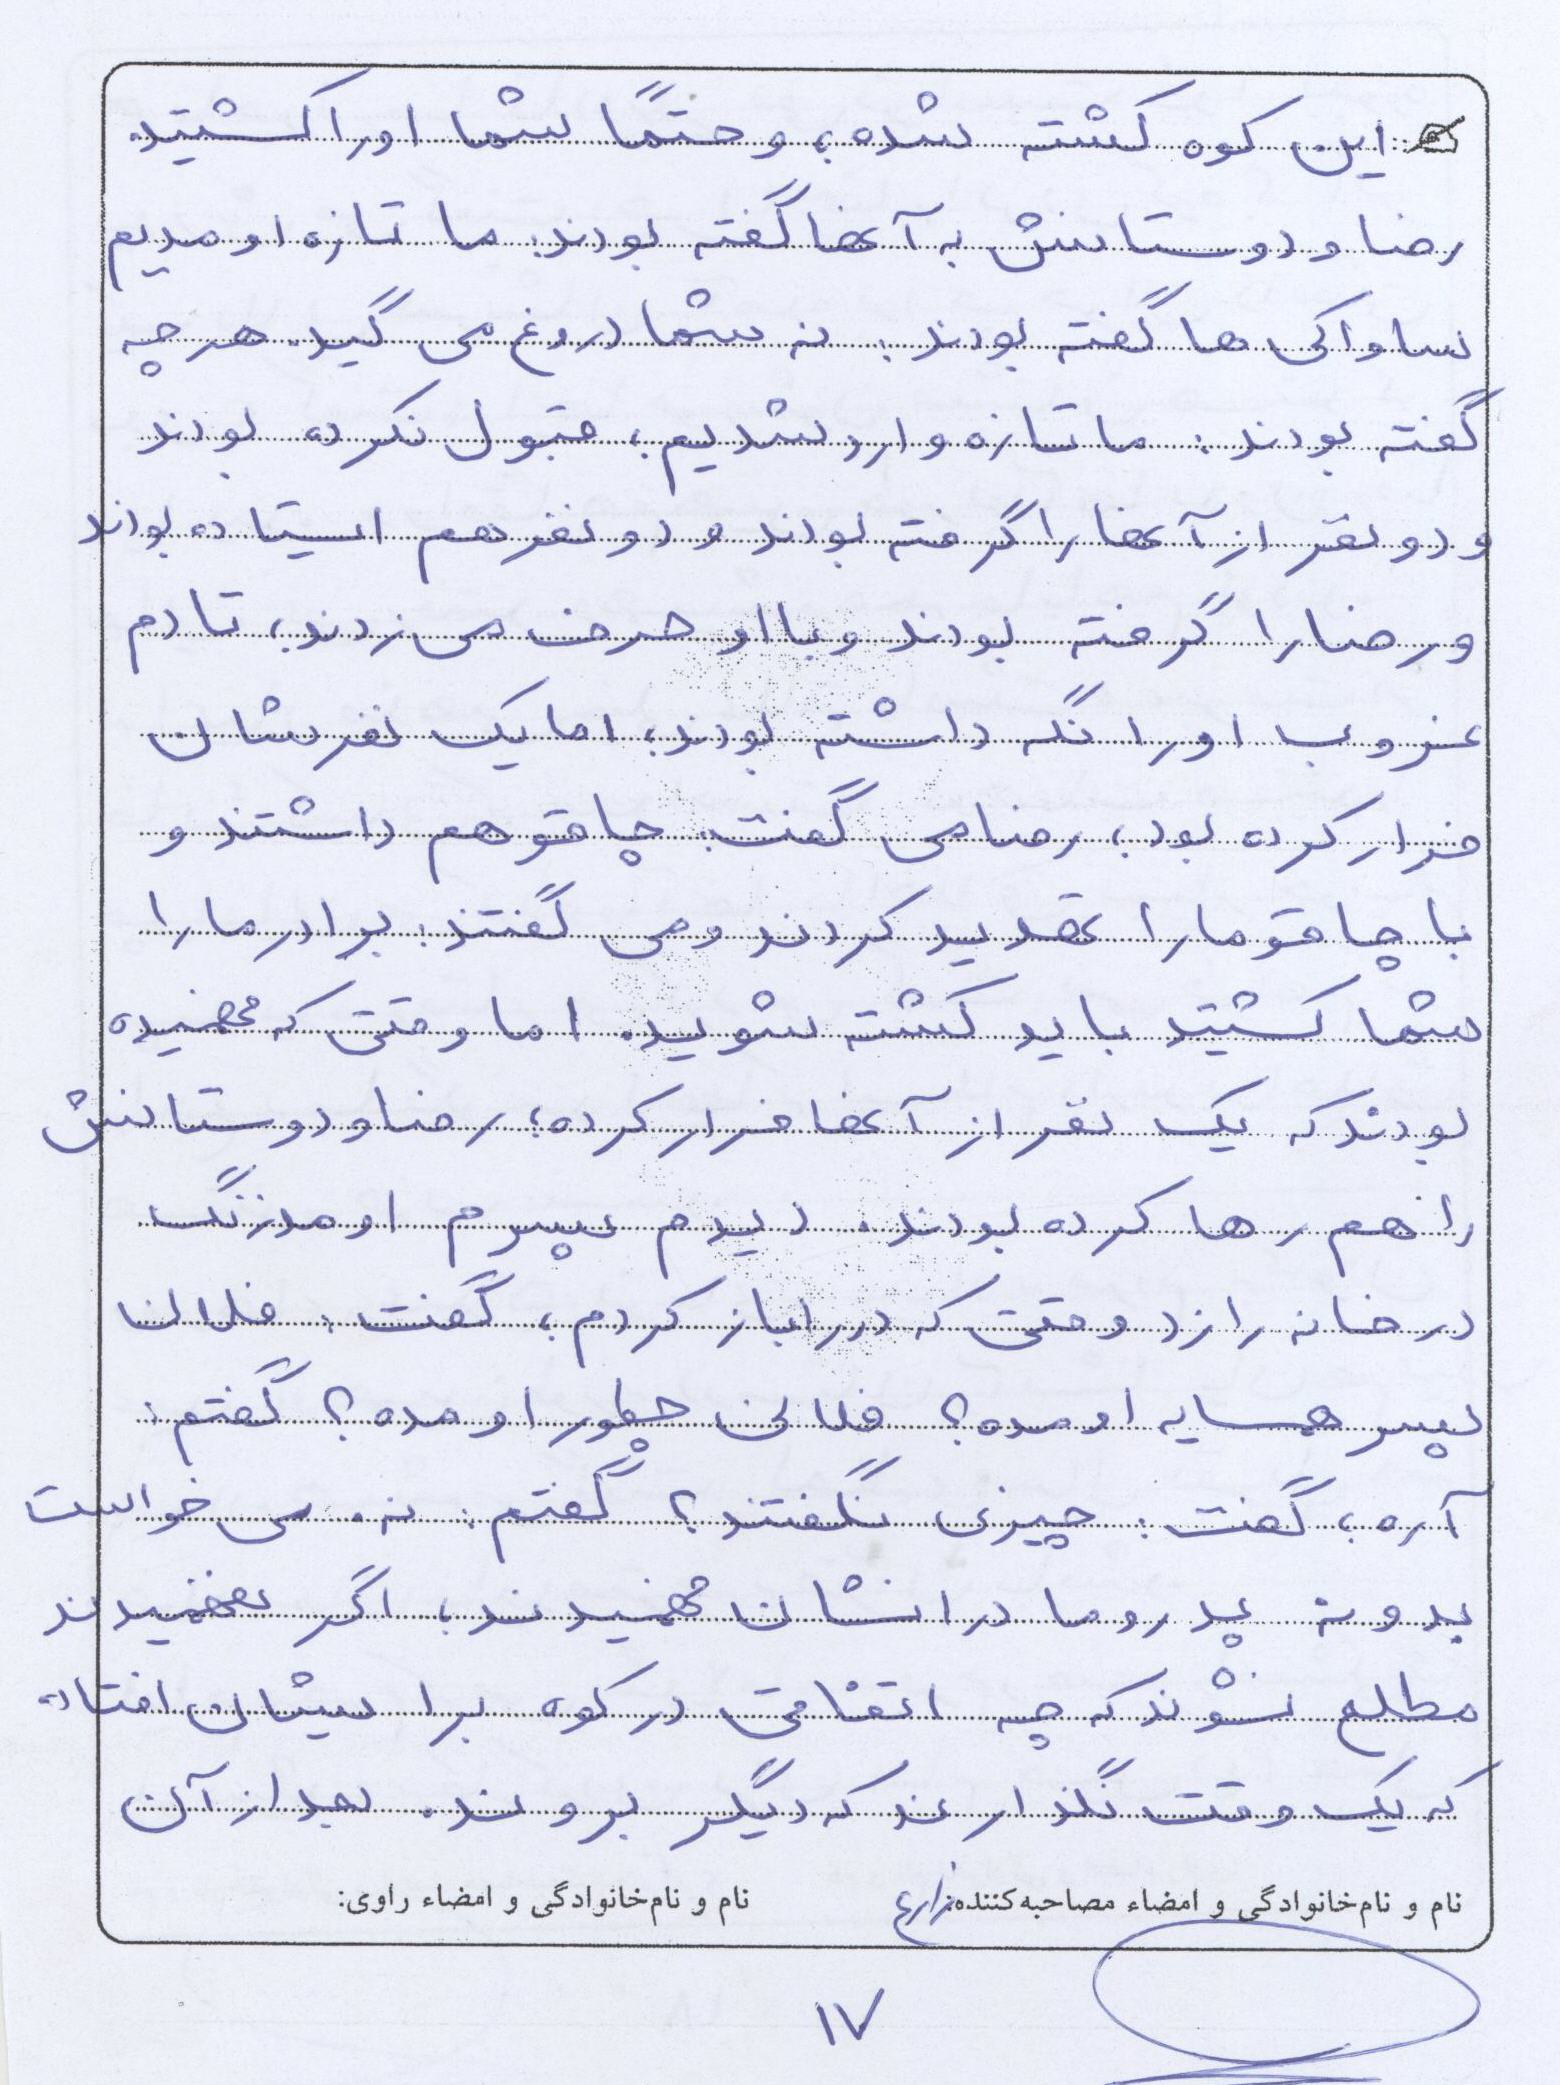 این کوه کشته شده، و حتمًا شما او را کشتید.
رضا و دوستانش به آنها گفته بودند: ما تازه اومدیم
ساواکی ها گفته بودند: نه شما دروغ می گید. هر چه
گفته بودند: ما تازه وارد شدیم، قبول نکرده بودند
و دو نفر از آنها را گرفته بودند و دو نفر هم ایستاده بودند
و رضا را گرفته بودند و با او حرف می زدند، تا دم
غروب او را نگه داشته بودند، اما یک نفرشان
فرار کرده بود، رضا می گفت: چاقو هم داشتند و
با چاقو ما را تهدید کردند و می گفتند: برادر ما را
شما کشتید باید کشته شوید. اما وقتی که فهمیده
بودند که یک نفر از آنها فرار کرده، رضا و دوستانش
را هم رها کرده بودند. دیدم پسرم اومد زنگ
در خانه را زد وقتی که در را باز کردم، گفت: فلان
پسر همسایه اومده؟ فلانی چطور اومده؟ گفتم:
آره، گفت: چیزی نگفتند؟ گفتم: نه. می خواست
بدونه پدر و مادرانشان فهمیدند، اگر نفهمیدند
مطلع نشوند که چه اتفاقی در کوه برایشان افتاده
که یک وقت نگذارند که دیگر بروند. بعد از آن
نام و نام‌خانوادگی و امضاء مصاحبه‌کننده: زارع
نام و نام‌خانوادگی و امضاء راوی:
۱۷